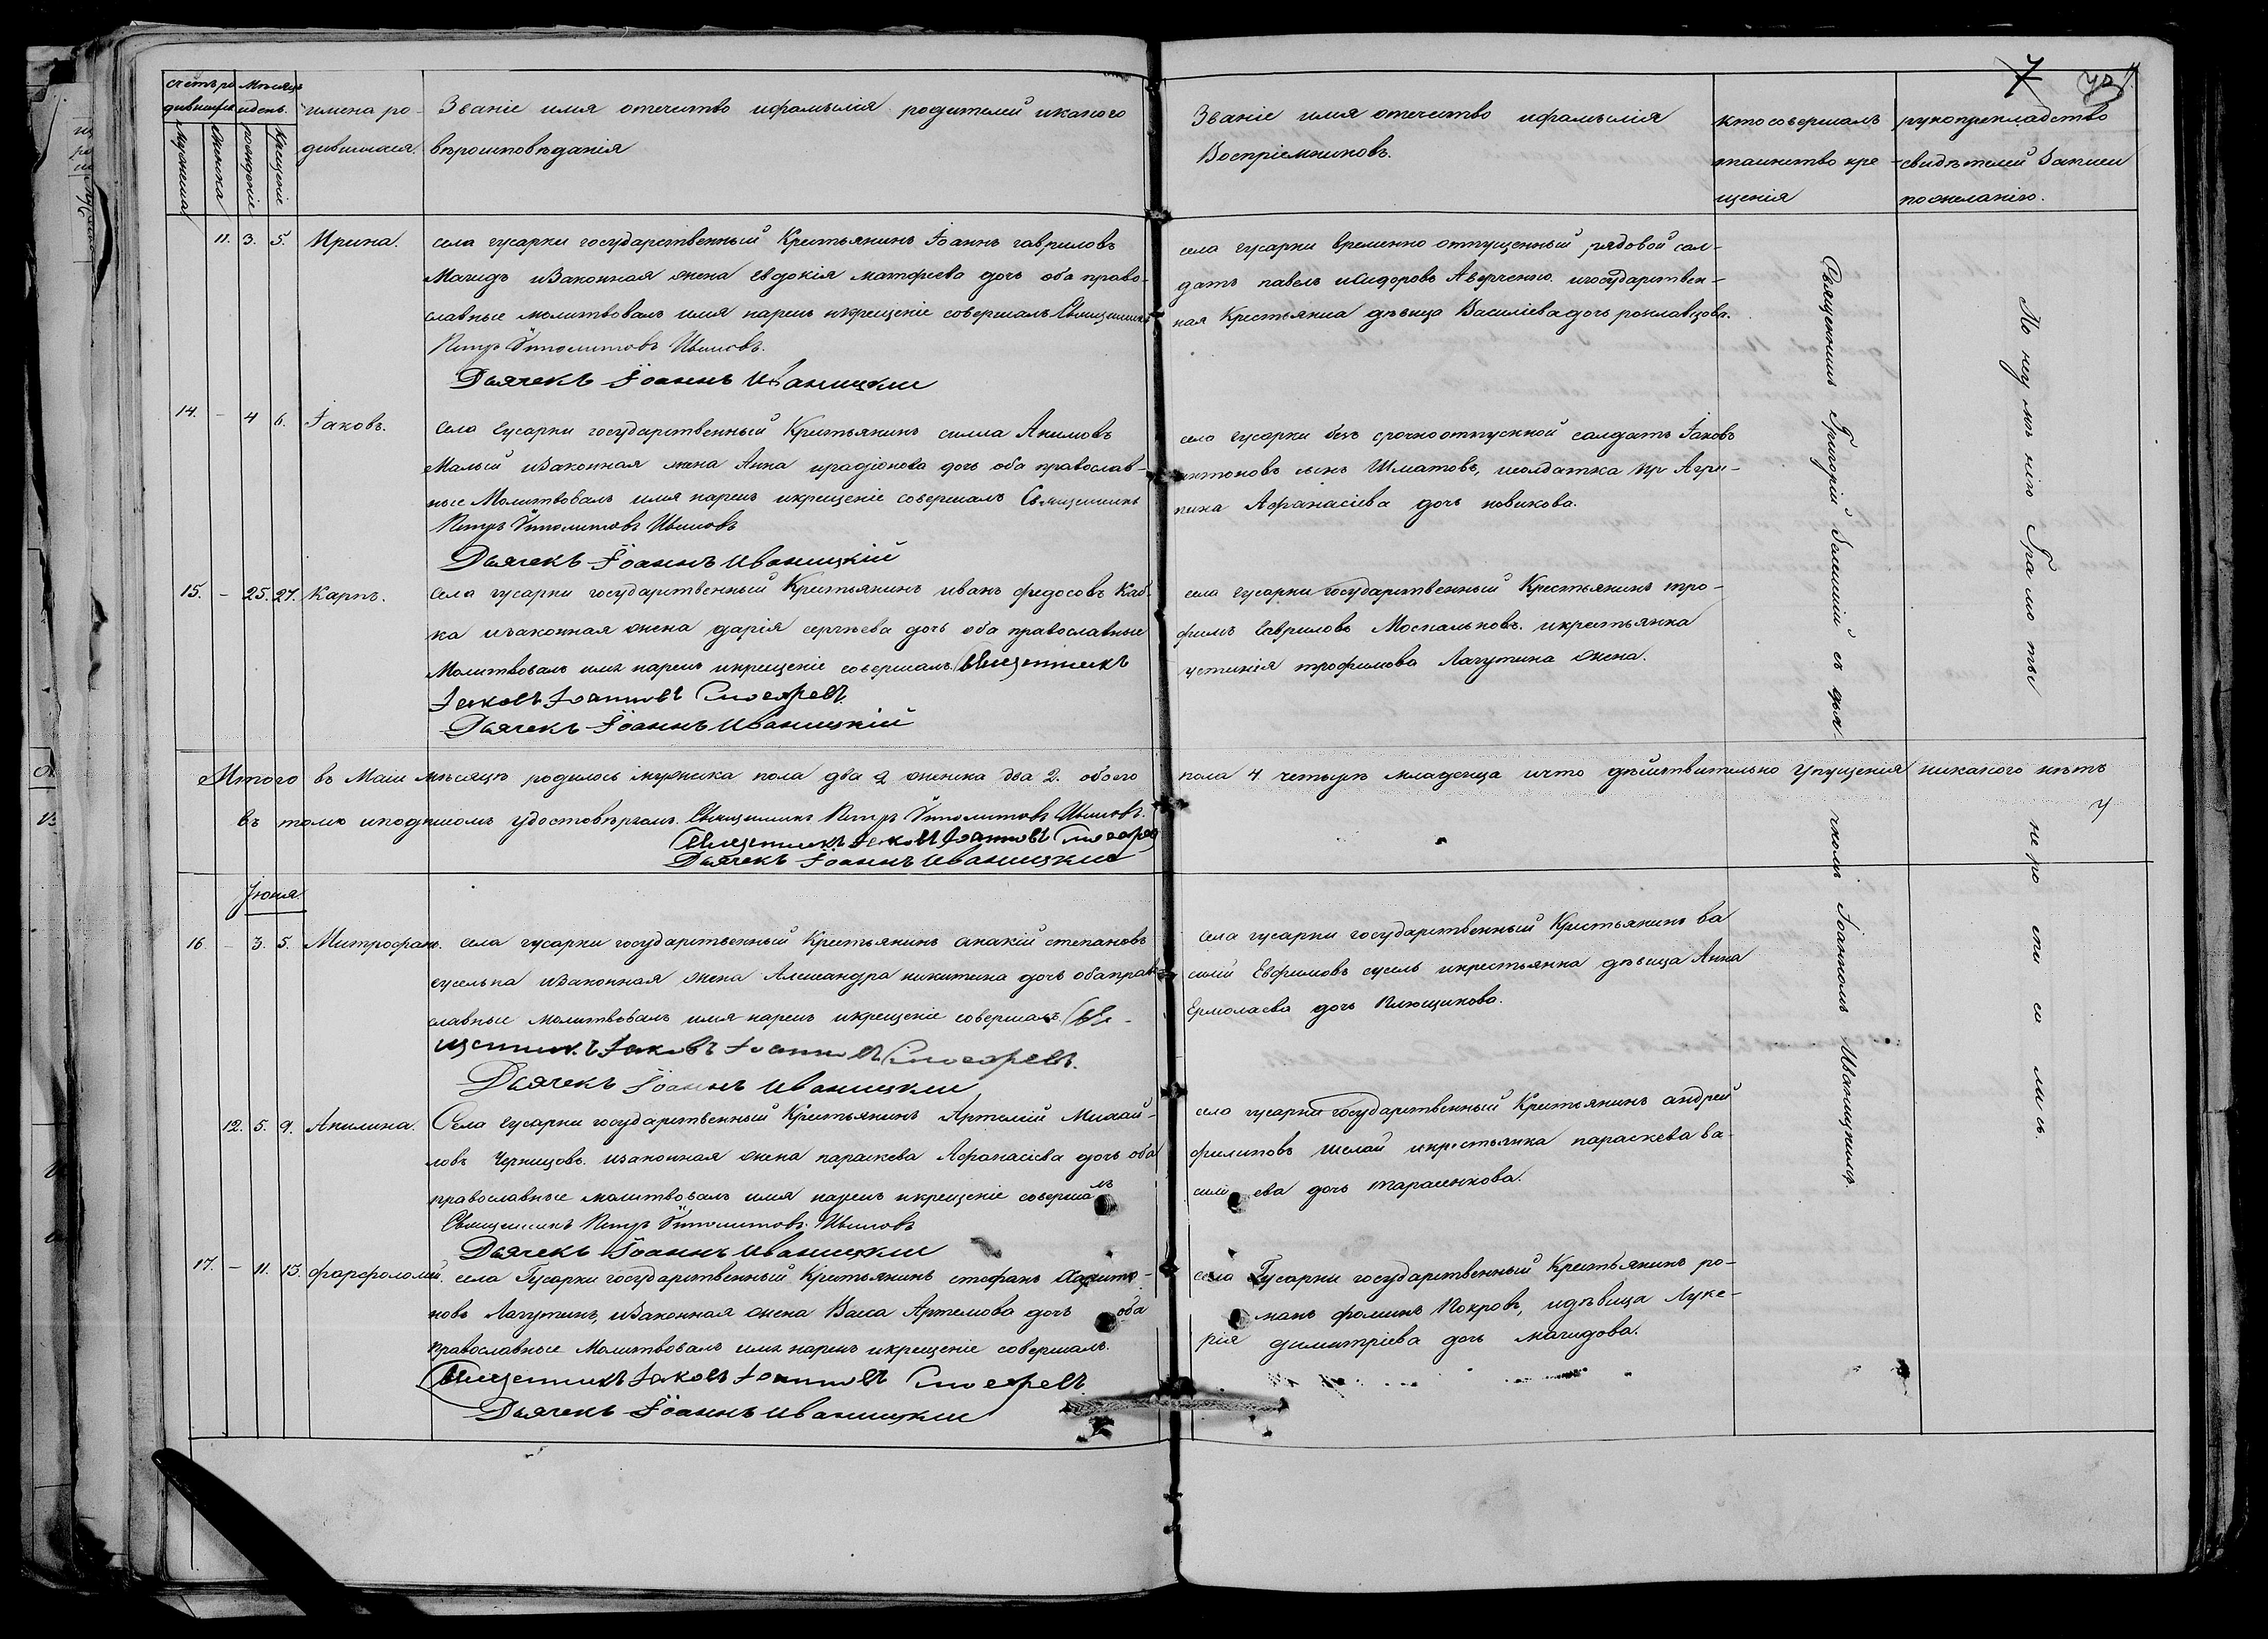 7
счетъ ро
дившихся
мѣсяцъ
и день.
Мужеска
Женска
рожденіе
Крещеніе
имена ро-
дившихся.
Званіе имя отечество ифамылія родителей икакого
вѣроисповѣданія
Званіе имя отечество ифамылія
Воспріемниковъ.
ктосовершалъ
таинство кре
щенія
рукоприкладство
свидѣтелей записи
по желанію.
11. 3. 5. Ирина.
села гусарки государственный Крестьянинъ Іоаннъ гавриловъ
Магидъ изаконная жена евдокія матфеева дочь оба право-
славные молитвовалъ имя нарекъ икрещеніе совершалъ Священникъ
Петръ
Дьячекъ Іоаннъ Иваницкій
села гусарки временно отпущенный рядовой сол-
датъ павелъ исидоровъ Аверченко. игосударствен-
ная Крестьянка дѣвица Василіева дочь
14. - 4 6. Іаковъ.
Села гусарки государственный Крестьянинъ силла Акимовъ
Малый изаконная жена Анна ирадіонова дочь оба православ-
ные Молитвовалъ имя нарекъ икрещеніе совершалъ Священникъ
Петръ
Дьячекъ Іоаннъ Иваницкій
села гусарки безъ срочноотпускной солдатъ Іаковъ
антоновъ сынъ Шматовъ, исолдатка Агри-
пина Афанасіева дочь новикова.
15. - 25. 27. Карпъ.
Села гусарки государственный Крестьянинъ иванъ федосовъ Каб-
ка изаконная жена дарія сергѣева дочь оба православные
Молитвовалъ имя нарекъ икрещеніе совершалъ Священникъ
Іаковъ Іоанновъ
Дьячекъ Іоаннъ Иваницкій
села гусарки государственный Крестьянинъ тро-
фимъ гавриловъ Москальковъ. икрестьянка
устинія трофимова Лагутина жена.
Итого въ Маии мѣсяцѣ родилось мужеска пола два 2 женска два 2. обоего
пола 4 четыре младенца ичто дѣйствительно упущенія никакого нѣтъ
въ томъ иподписомъ удостовѣряемъ. Священникъ Петръ
Священникъ Іаковъ Іоанновъ
Дьячекъ Іоаннъ Иваницкій
Іюня.
16. - 3. 5. Митрофанъ.
села гусарки государственный Крестьянинъ акакій степановъ
сусълка изаконная жена Александра никитина дочь обаправо-
славные молитвовалъ имя нарекъ икрещеніе совершалъ Свя-
щенникъ Іаковъ Іоанновъ
Дьячекъ Іоаннъ Иваницкій
Села гусарки государственный Крестьянинъ ва
силій Евфимовъ сусль икрестьянка дѣвица Анна
Ермолаева дочь Клющикова.
12. 5. 9. Акилина.
Села гусарки государственный Крестьянинъ Артемій Михай-
ловъ Чернцовъ. изаконная жена параскева Афанасіева дочь оба
православные молитвовалъ имя нарекъ икрещеніе совершалъ
Священникъ Петръ
Дьячекъ Іоаннъ Иваницкій
села гусарки государственный Крестьянинъ андрей
филиповъ икрестьянка параскева ва-
силіева дочь тарасенкова.
17. - 11. 13. фарфоломей.
села Гусарки государственный Крестьянинъ стефанъ Харито-
новъ Лагутинъ, изаконная жена Васа Артемова дочь оба
православные Молитвовалъ имя нарекъ икрещеніе совершалъ.
Священникъ Іаковъ Іоанновъ
Дьячекъ Іоаннъ Иваницкій
села Гусарки государственный Крестьянинъ ро-
манъ фоминъ Покровъ, идѣвица Луке-
рія димитріева дочь магидова.
Священникъ Григорій съ дья-
чкомъ Іоанномъ Иваницкимъ.
По неумѣнію Грамоты
не росписались.